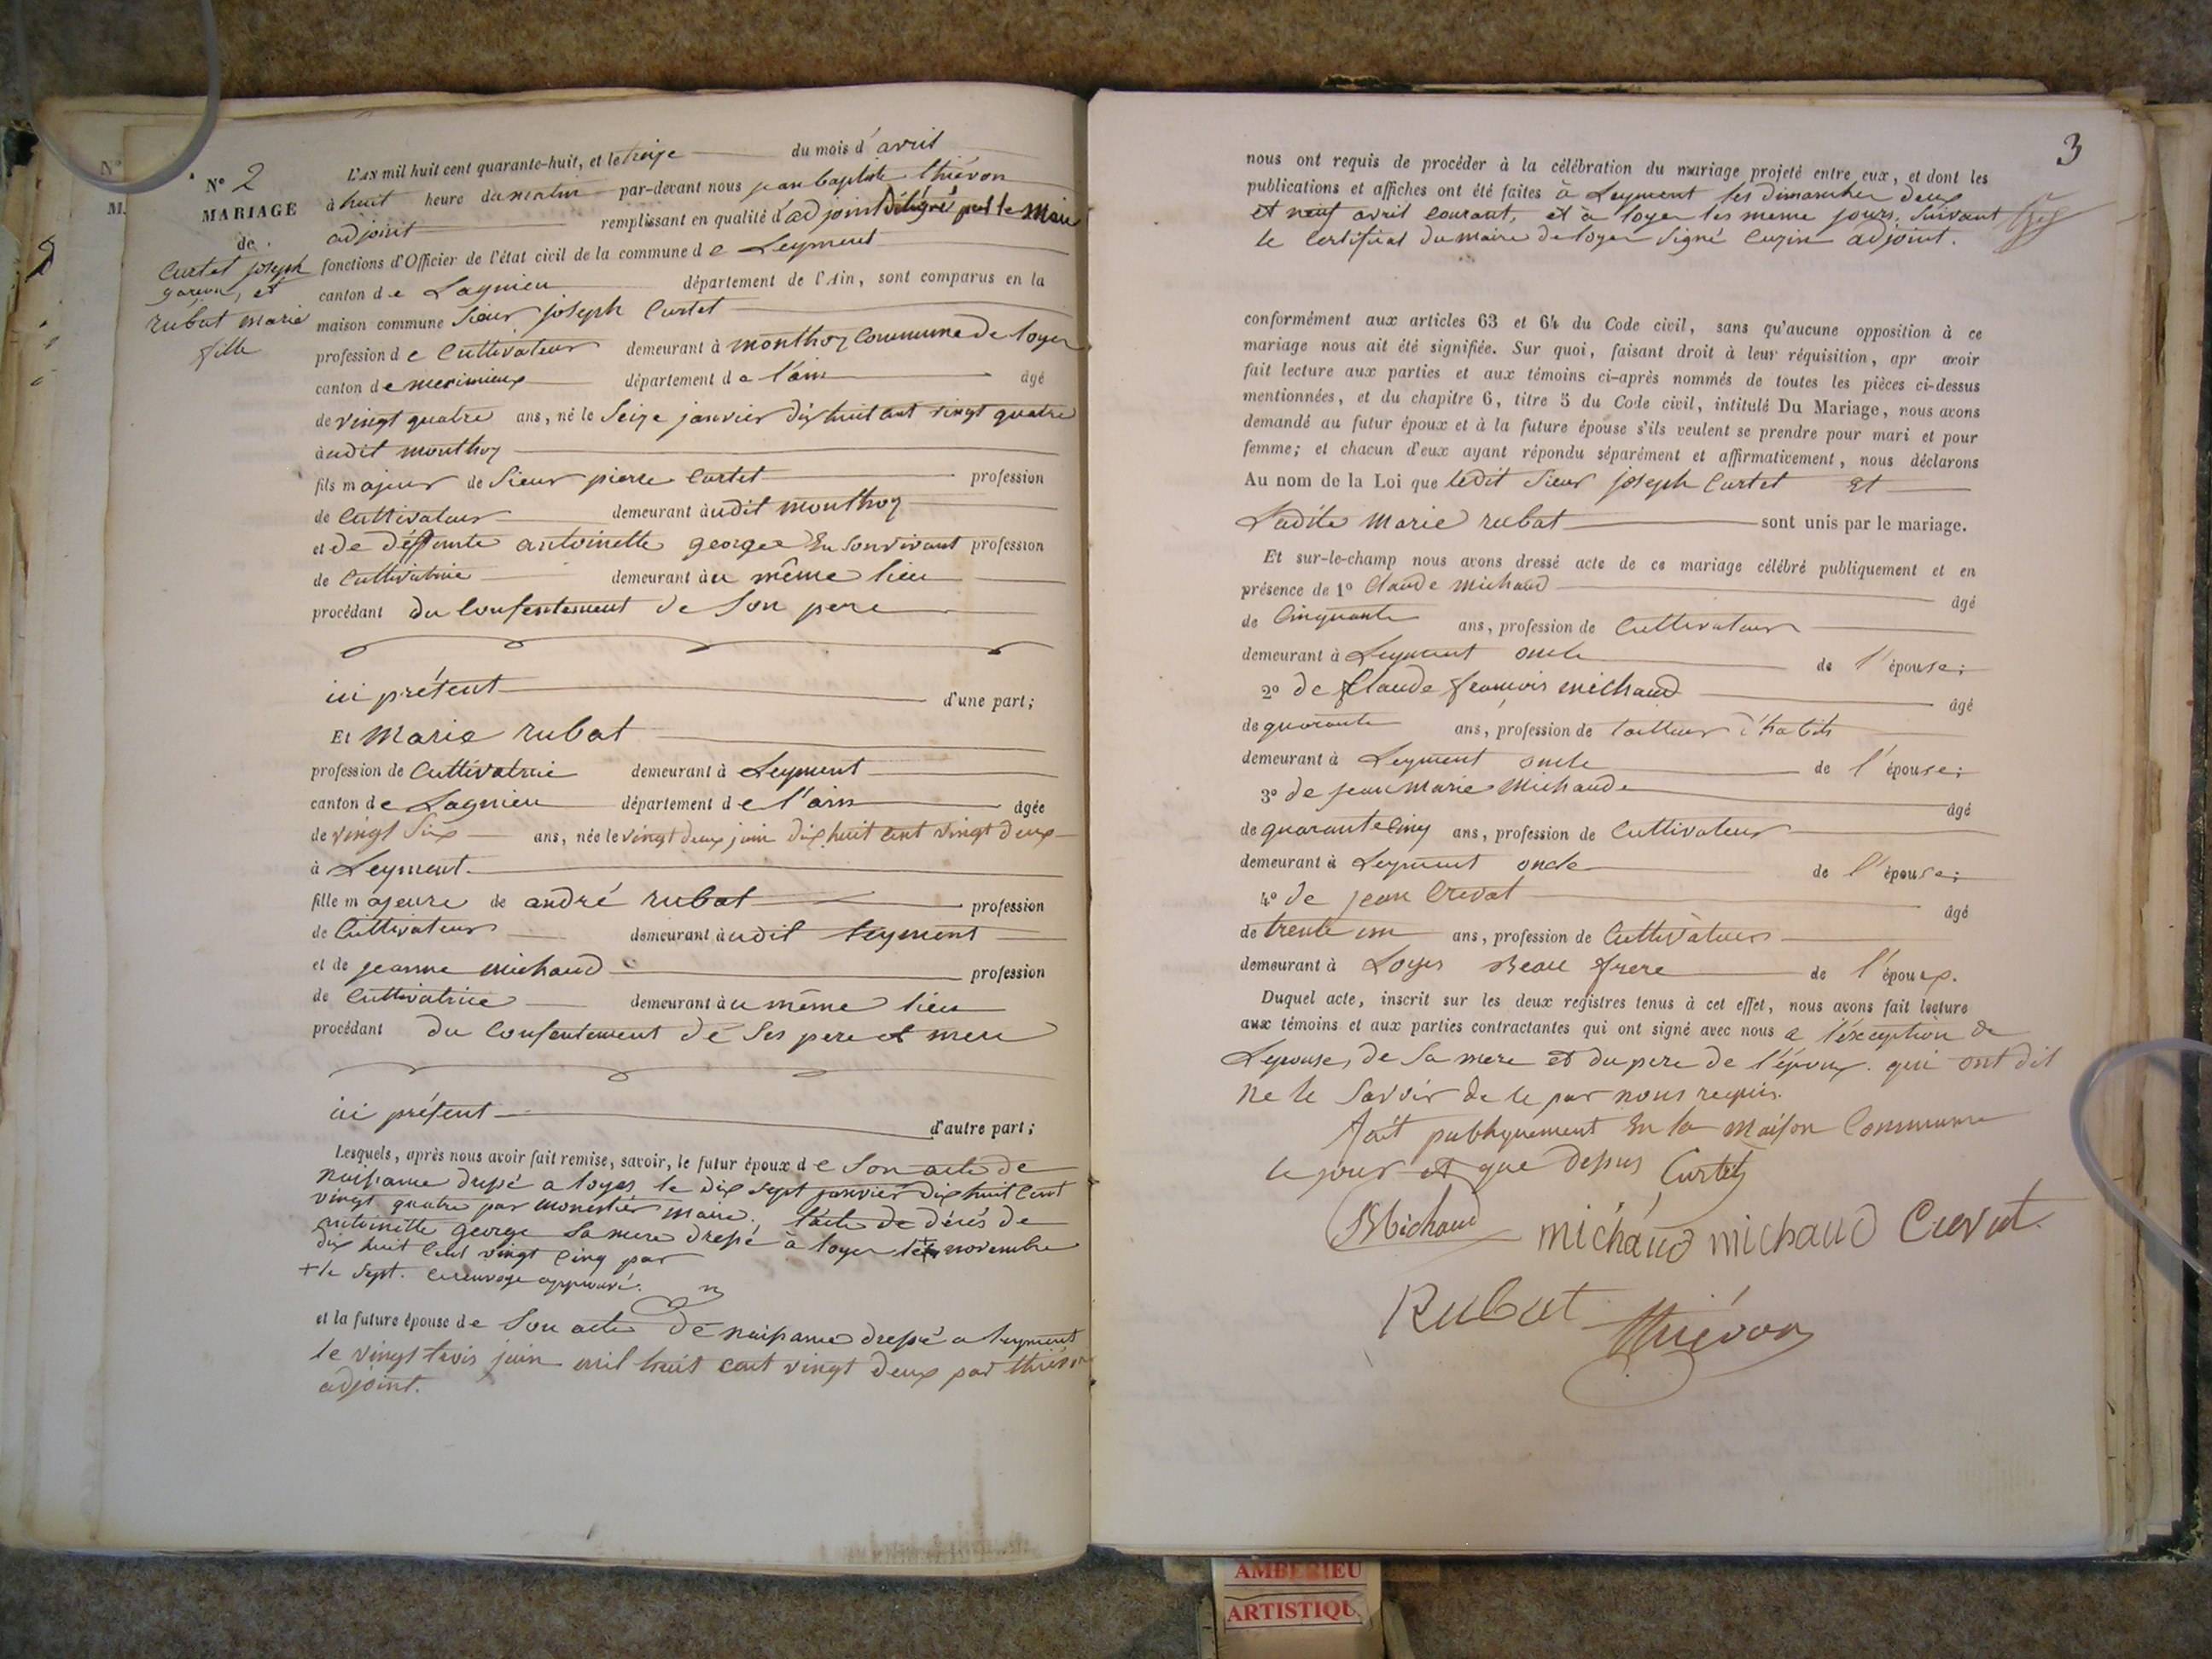 N° 2
MARIAGE
de
Curtet joseph
garçon, et
rubat marie
fille
L'AN mil huit cent quarante-huit, et le treize du mois d'avril
à huit heure du matin par-devant nous jean baptiste thiévon
adjoint remplissant en qualité d'adjoint délégué par le Maire
fonctions d'Officier de l'état civil de la commune de Leyment
canton de Lagnieu département de l'Ain, sont comparus en la
maison commune Sieur joseph Curtet
profession de Cultivateur demeurant à monthoz Commune de loyes
canton de meximieux département de l'ain âgé
de vingt quatre ans, né le Seize janvier dix huit cent vingt quatre
àudit monthoz
fils majeur de Sieur pierre Curtet profession
de Cultivateur demeurant àudit monthoz
et de défunte antoinette george En Son vivant profession
de Cultivatrice demeurant àu même lieu
procédant du Consentement de Son pere
ici présent d'une part;
Et Marie rubat
profession de Cultivatrice demeurant à Leyment
canton de Lagnieu département de l'ain âgée
de vingt Six ans, née le vingt deux juin dix huit cent vingt deux
à Leyment.
fille majeure de andré rubat profession
de Cultivateur demeurant àudit leyment
et de jeanne michaud profession
de Cultivatrice demeurant àu même lieu
procédant du Consentement de Ses pere et mere
ici présent d'autre part;
Lesquels, après nous avoir fait remise, savoir, le futur époux de Son acte de
naissance dressé a loyes le dix Sept janvier dix huit Cent
vingt quatre par monestier maire. l'acte de décés de
antoinette george Sa mere dressé à loyes le + novembre
dix huit Cent vingt Cinq par
+ le Sept. approuvé.
et la future épouse de Son acte de naissance dressé a leyment
le vingt trois juin mil huit cent vingt deux par thiévon
adjoint.
3
nous ont requis de procéder à la célébration du mariage projeté entre eux, et dont les
publications et affiches ont été faites à Leyment les dimanches deux
et neuf avril courant, et à loyes les meme jours. Suivant
le Certificat du maire de loyes Signé Cuzin adjoint.
conformément aux articles 63 et 64 du Code civil, sans qu'aucune opposition à ce
mariage nous ait été signifiée. Sur quoi, faisant droit à leur réquisition, apr avoir
fait lecture aux parties et aux témoins ci-après nommés de toutes les pièces ci-dessus
mentionnées, et du chapitre 6, titre 5 du Code civil, intitulé Du Mariage, nous avons
demandé au futur époux et à la future épouse s'ils veulent se prendre pour mari et pour
femme; et chacun d'eux ayant répondu séparément et affirmativement, nous déclarons
Au nom de la Loi que ledit Sieur joseph Curtet Et
Ladite Marie rubat sont unis par le mariage.
Et sur-le-champ nous avons dressé acte de ce mariage célébré publiquement et en
présence de 1° Claude Michaud âgé
de Cinquante ans, profession de Cultivateur
demeurant à Leyment oncle de l'épouse;
2° de Claude françois michaud âgé
de quarante ans, profession de tailleur d'habits
demeurant à Leyment oncle de l'épouse;
3° de jean Marie Michaud âgé
de quarante Cinq ans, profession de Cultivateur
demeurant à Leyment oncle de l'épouse;
4° de jean Crevat âgé
de trente un ans, profession de Cultivateur
demeurant à Loyes Beau frere de l'époux.
Duquel acte, inscrit sur les deux registres tenus à cet effet, nous avons fait lecture
aux témoins et aux parties contractantes qui ont signé avec nous a l'exception de
Lepouse, de Sa mere et du pere de l'époux. qui ont dit
ne le Savoir de le par nous requis.
fait publiquement En la Maison Commune
le jour et que dessus Curtet
Michaud michaud michaud Crevat.
Rubat thiévon
AMBERIEU
ARTISTIQU